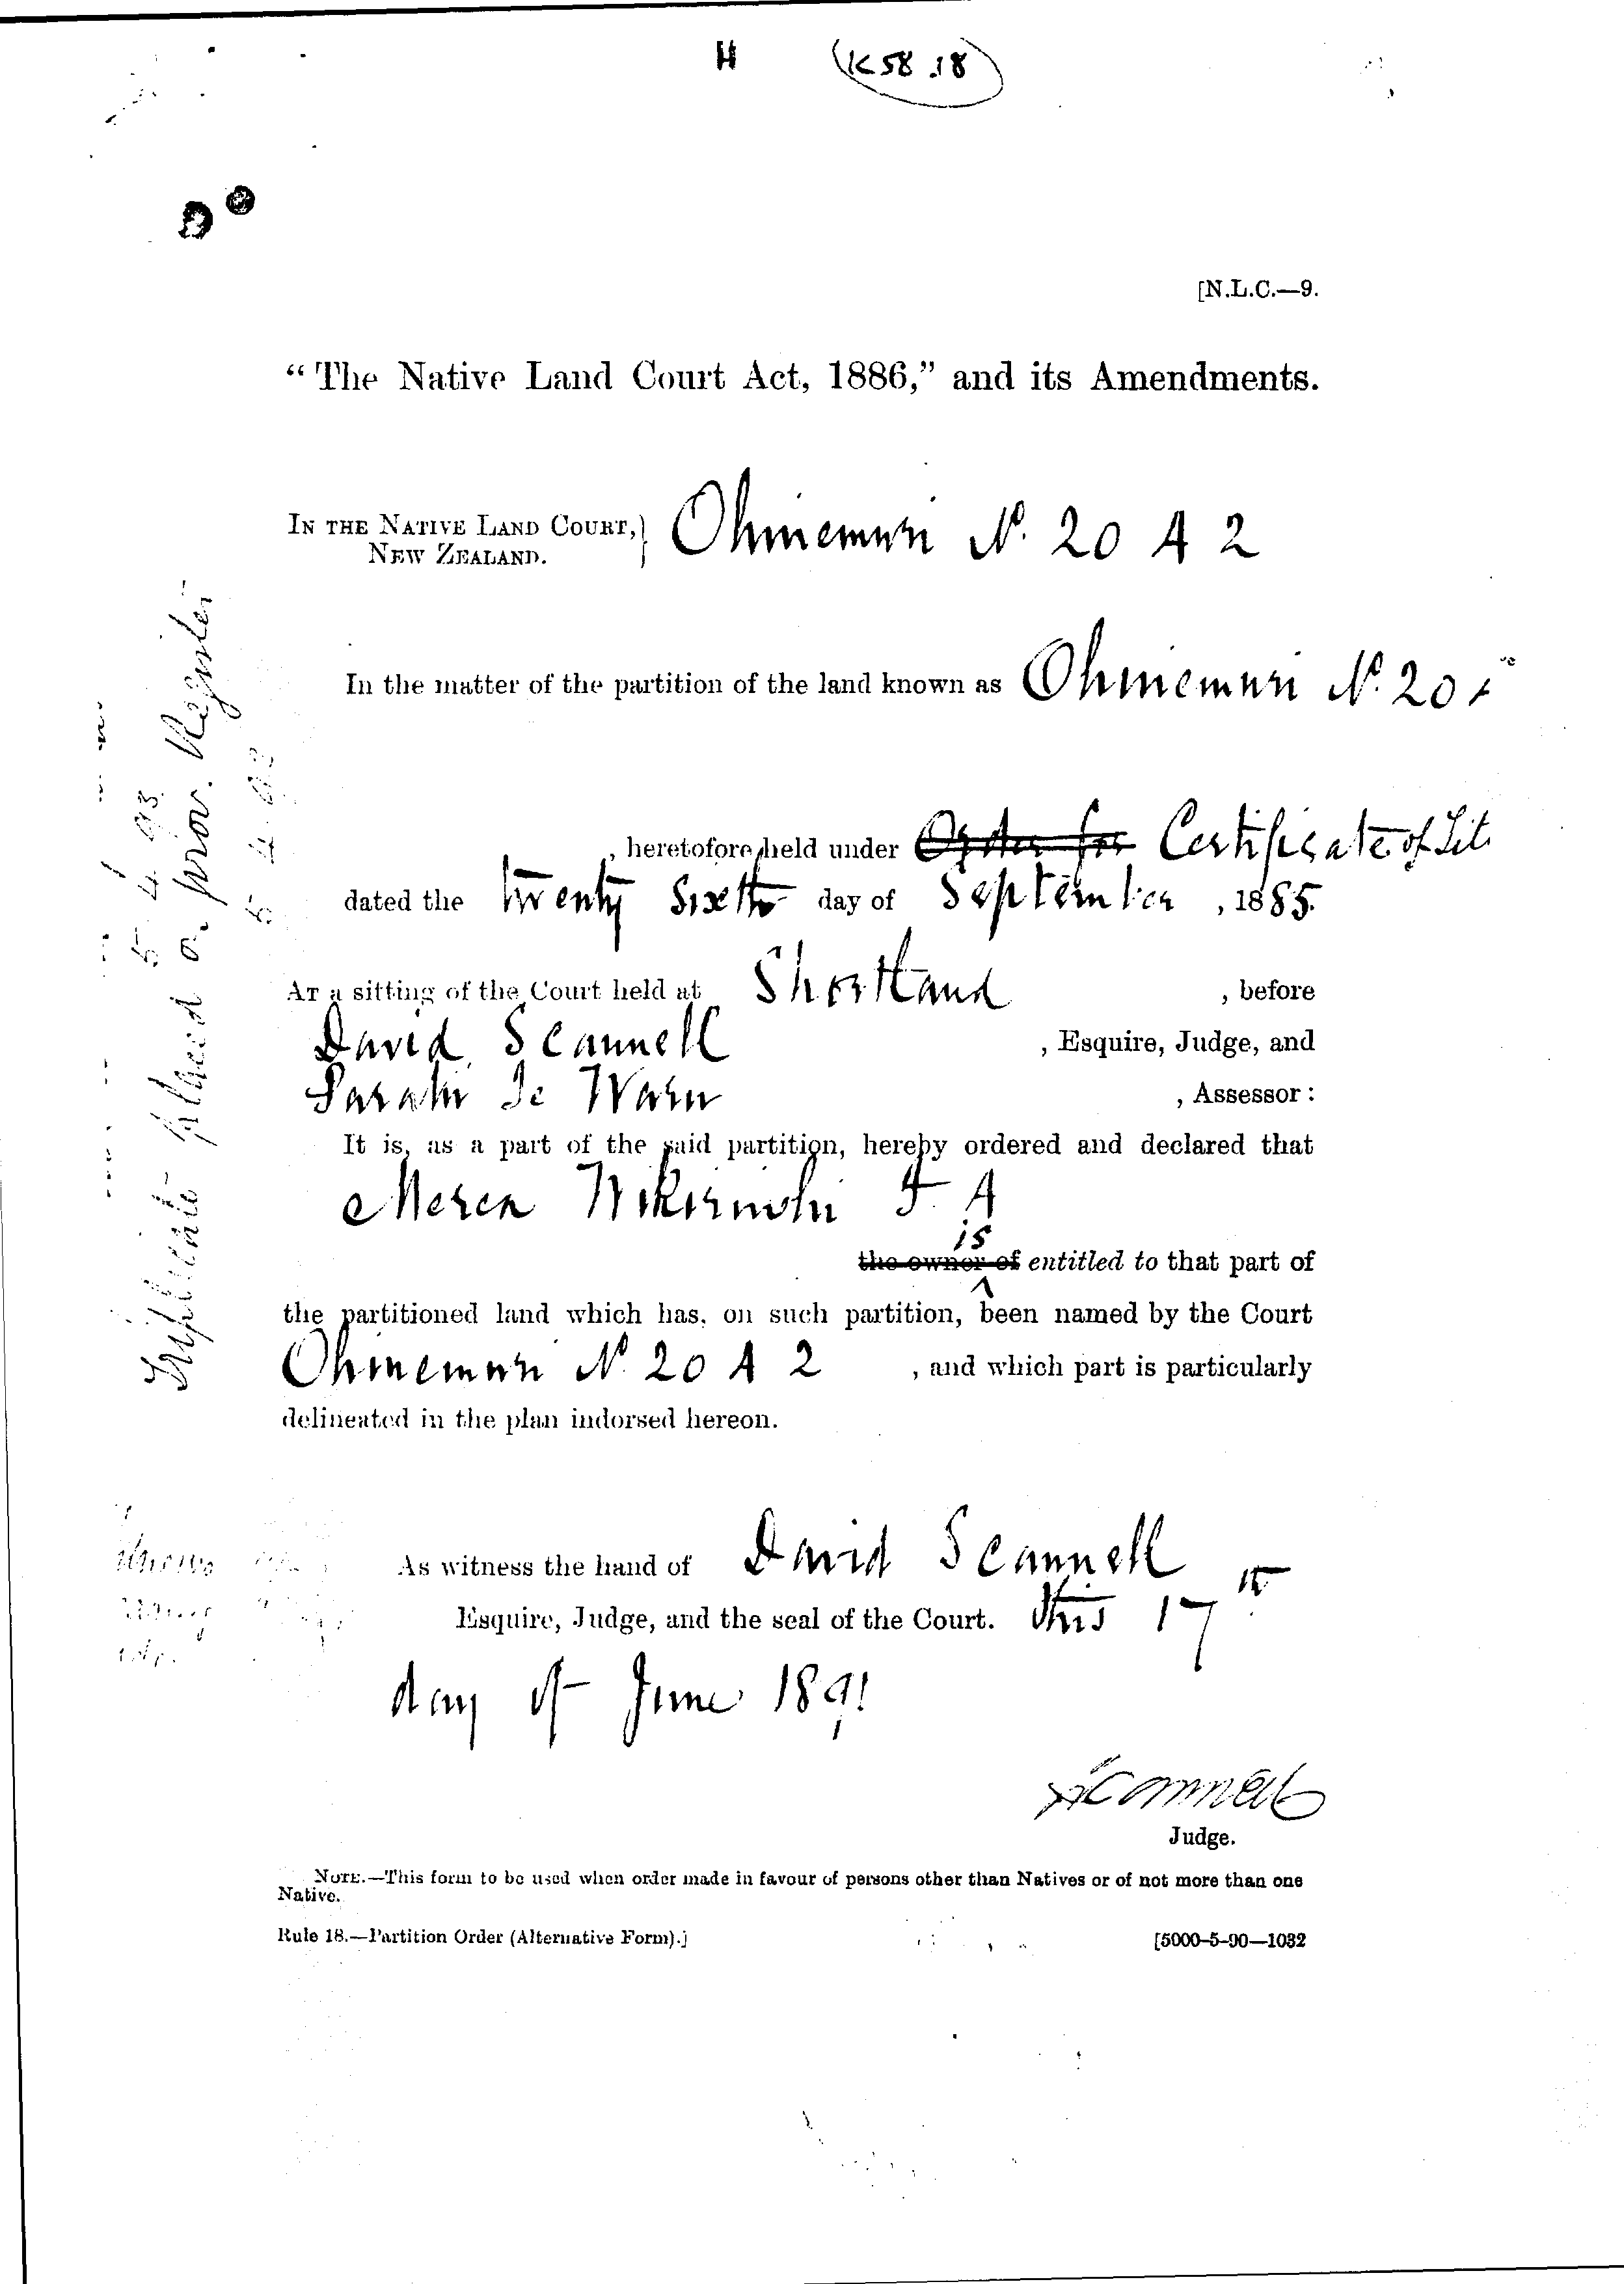 H (K 58 .18)
[N.L.C.—9.
“The Native Land Court Act, 1886,” and its Amendments.
IN THE NATIVE LAND COURT,) Ohinemuri No. 20 A 2
NEW ZEALAND.
In the matter of the partition of the land known as Ohinemuri No. 20
, heretofore held under Order for Certificate of Titl
dated the twenty Sixth day of September , 1885.
AT a sitting of the Court held at Shortland , before
David Scannell , Esquire, Judge, and
, Assessor :
It is, as a part of the said partition, hereby ordered and declared that
Merea Wikiriwhi F. A
is
the owner of entitled to that part of
the partitioned land which has, on such partition, been named by the Court
Ohinemuri No. 20 A 2 , and which part is particularly
delineated in the plan indorsed hereon.
As witness the hand of David Scannell
Esquire, Judge, and the seal of the Court. This 17th
day of June 1891
Scannell
Judge.
NOTE.—This form to be used when order made in favour of persons other than Natives or of not more than one
Native.
Rule 18.—Partition Order (Alternative Form).]
[5000–5–90—1032
Duplicate placed Prov. Register